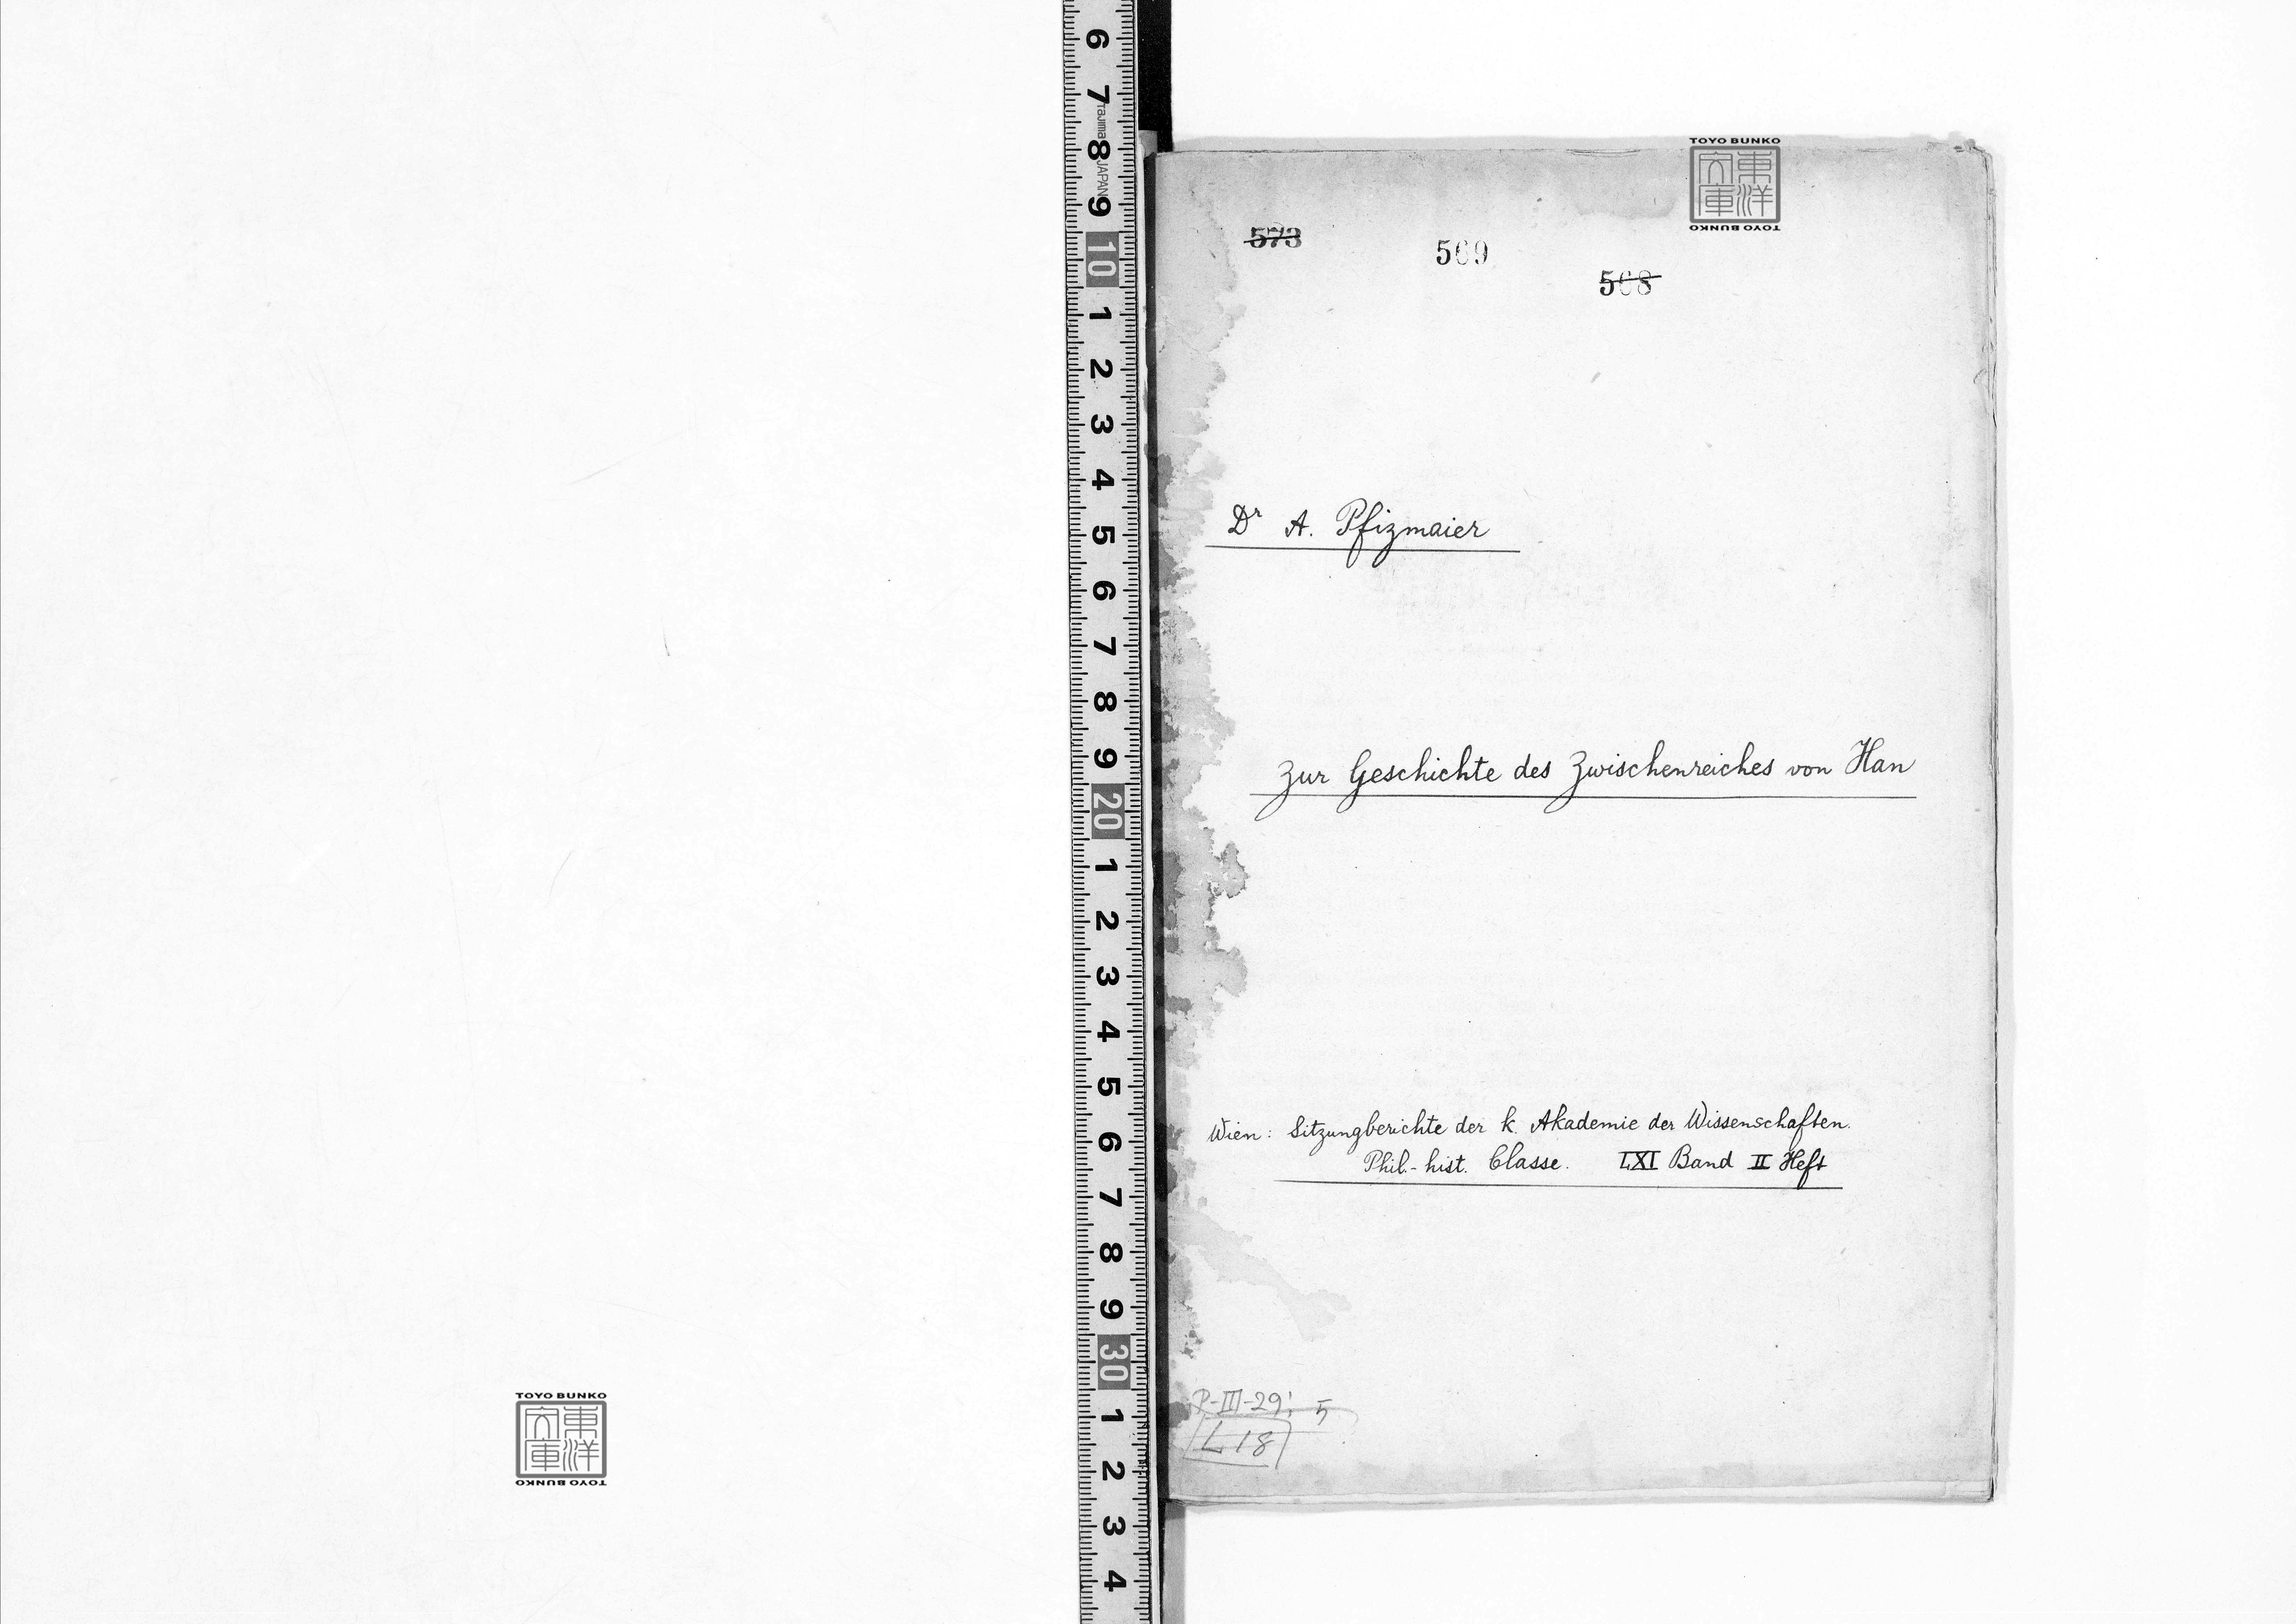 TOYO BUNKO
東洋文庫
TOYO BUNKO
6
7
Tajima
8
JAPAN
9
10
1
2
3
4
5
6
7
8
9
20
1
2
3
4
5
6
7
8
9
30
1
2
3
4
TOYO BUNKO
東洋文庫
TOYO BUNKO
573
569
568
Dr A. Pfizmaier
Zur Geschichte des Zwischenreiches von Han
Wien: Sitzungberichte der k. Akademie der Wissenschaften.
Phil.-hist. Classe. LXI Band II Heft
P-III-29; 5
L 18